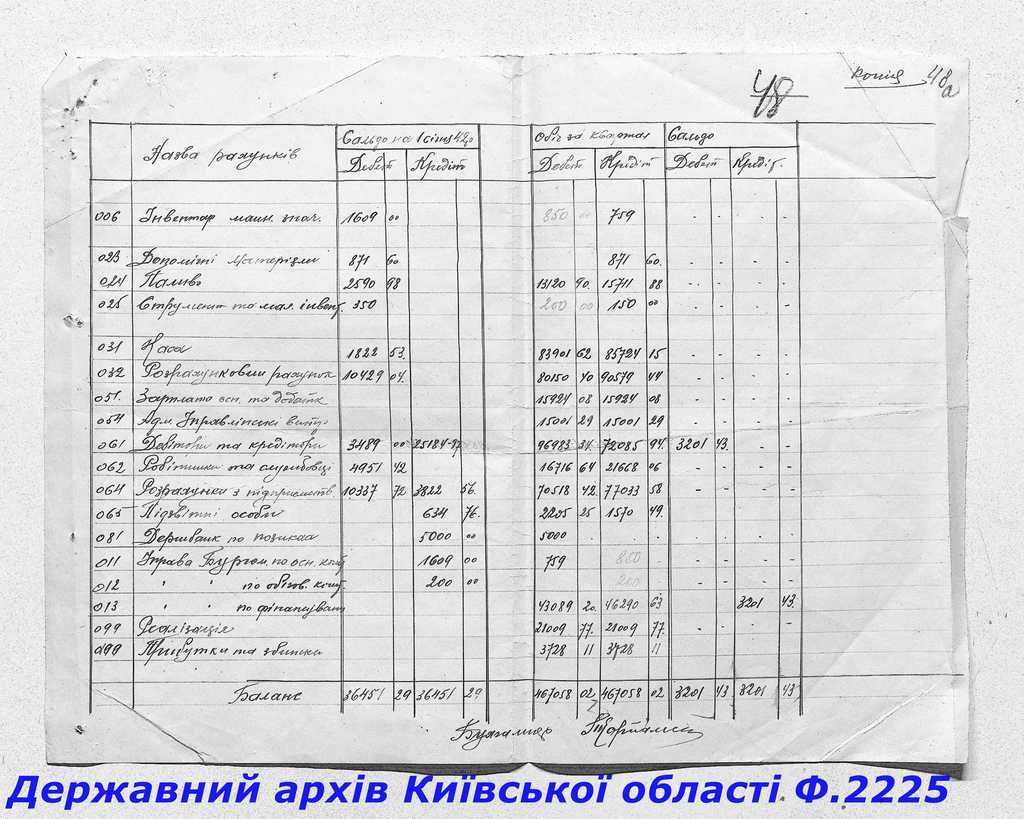 48 копія 48а
Назва рахунків Сальдо на 1 січня 42р Обіг за квартал Сальдо
Дебет Кредіт Дебет Кредіт Дебет Кредіт
006 Інвентар 1609 00 850 00 759 - - - -
023 Допоміжні матеріали 871 60 871 60 - - - -
024 Паливо 2590 98 13120 90 15711 88 - - - -
025 Струмент та мал. інвент. 350 200 00 150 00 - - - -
031 Каса 1822 53 83901 62 85724 15 - - - -
032 Розрахунковий рахунок 10429 04 80150 40 90579 44 - - - -
051 Зарплата осн. та додатк 15924 08 15924 08 - - - -
054 Адм. Управлінські 15001 29 15001 29 - - - -
061 Дебітори та кредітори 3489 00 96983 34 72085 94 3201 43 - -
062 Робітники та службовці 4951 42 16716 64 21668 06 - - - -
064 Розрахунки з підприємств. 10337 72 3822 56 70518 42 77033 58 - - - -
065 Підзвітні особи 634 76 2205 25 1570 49 - - - -
081 Держбанк по позиках 5000 00 5000 - - - - - -
011 Управа Бургом. по осн. кошт 1609 00 759 850 - - - -
012 " " по обігов. кошт. 200 00 200 - - - -
013 " " по фінансуван 43089 20 46290 63 3201 43
099 Реалізація 21009 77 21009 77 - - - -
099 Прибутки та збитки 3728 11 3728 11 - - - -
Баланс 36451 29 36451 29 467058 02 467058 02 3201 43 3201 43
Бухгалтер
Державний архів Київської області Ф.2225